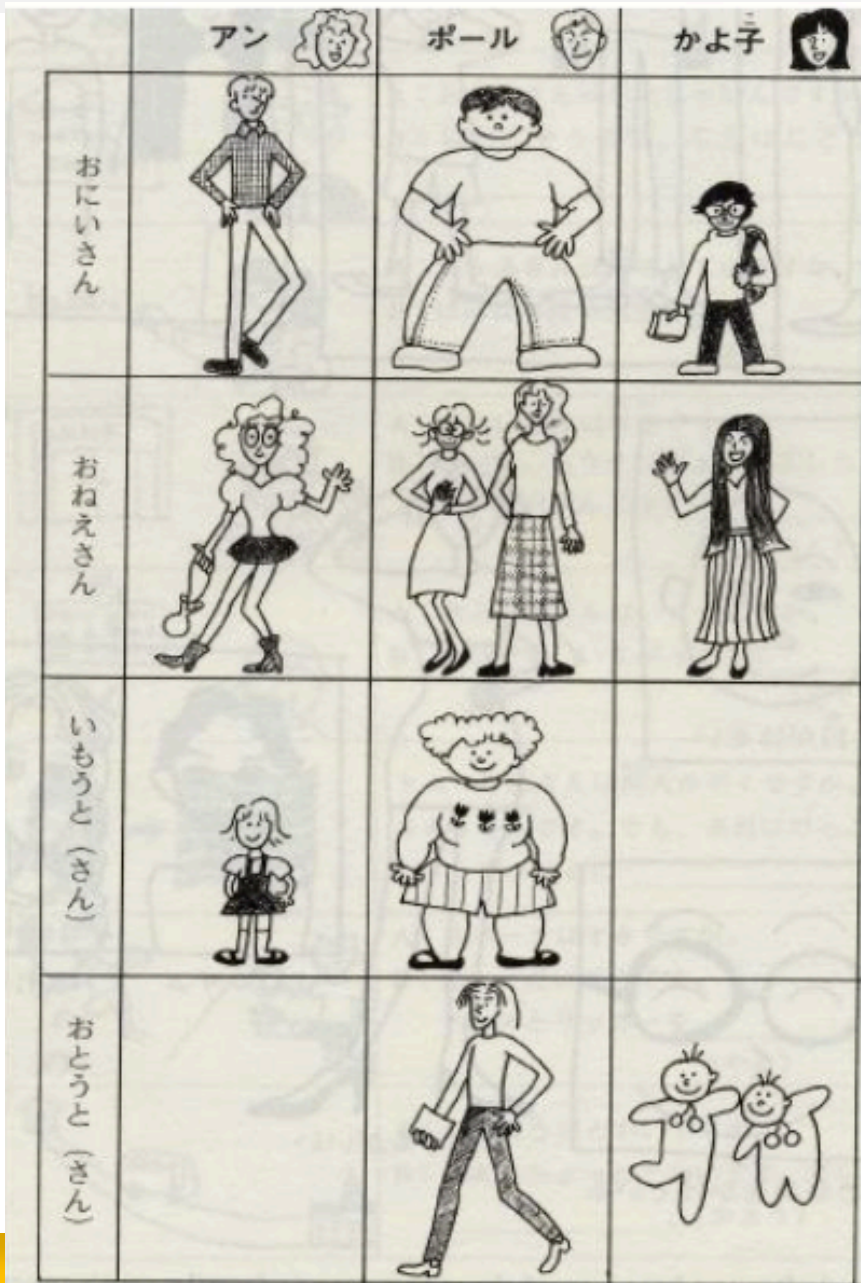 アン ポール かよ子
こ
おにいさん
おねえさん
いもうと（さん）
おとうと（さん）